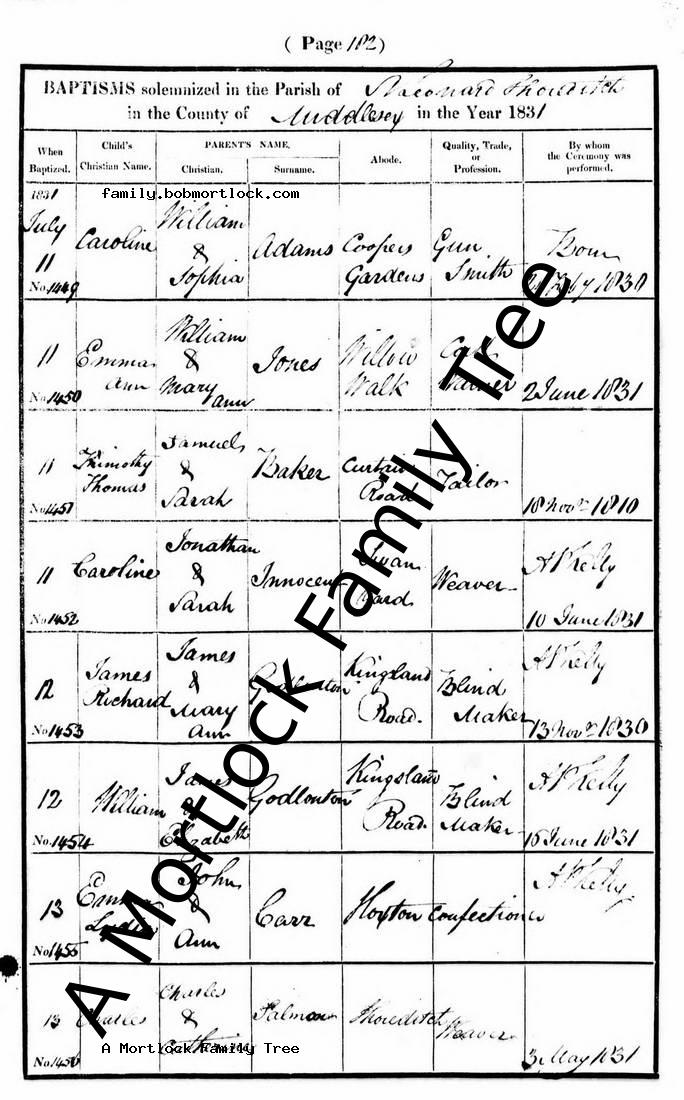 ( Page 182)
BAPTISMS solemnized in the Parish of St Leonard Shoreditch
in the County of Middlesex in the Year 1831
When Baptized.
Child's Christian Name.
PARENT'S NAME.
Christian.
Surname.
Abode.
Quality, Trade, or Profession.
By whom the Ceremony was performed.
1831
family.bobmortlock.com
July 11
Caroline
William & Sophia
Adams
Coopers Gardens
Gun Smith
Born
1830
No. 1449
11
Emma Ann
William & Mary ann
Jones
Willow Walk
2 June 1831
No. 1450
11
Thimothy Thomas
Samuel & Sarah
Baker
Curtain Road
Tailor
18 Novr 1810
No. 1451
11
Caroline
Jonathan & Sarah
Innocent
Swan Yard
Weaver
A P Kelly
10 June 1831
No. 1452
12
James Richard
James & Mary Ann
Godlonton
Kingsland Road.
Blind Maker
A P Kelly
13 Novr 1830
No. 1453
12
William
James & Elizabeth
Godlonton
Kingsland Road.
Blind Maker
A P Kelly
16 June 1831
No. 1454
13
John & Ann
Carr
Hoxton
Confectioner
A P Kelly
No. 1455
13
Charles
Charles &
Salmon
Shoreditch
Weaver
3 May 1831
No. 1456
A Mortlock Family Tree
A Mortlock Family Tree